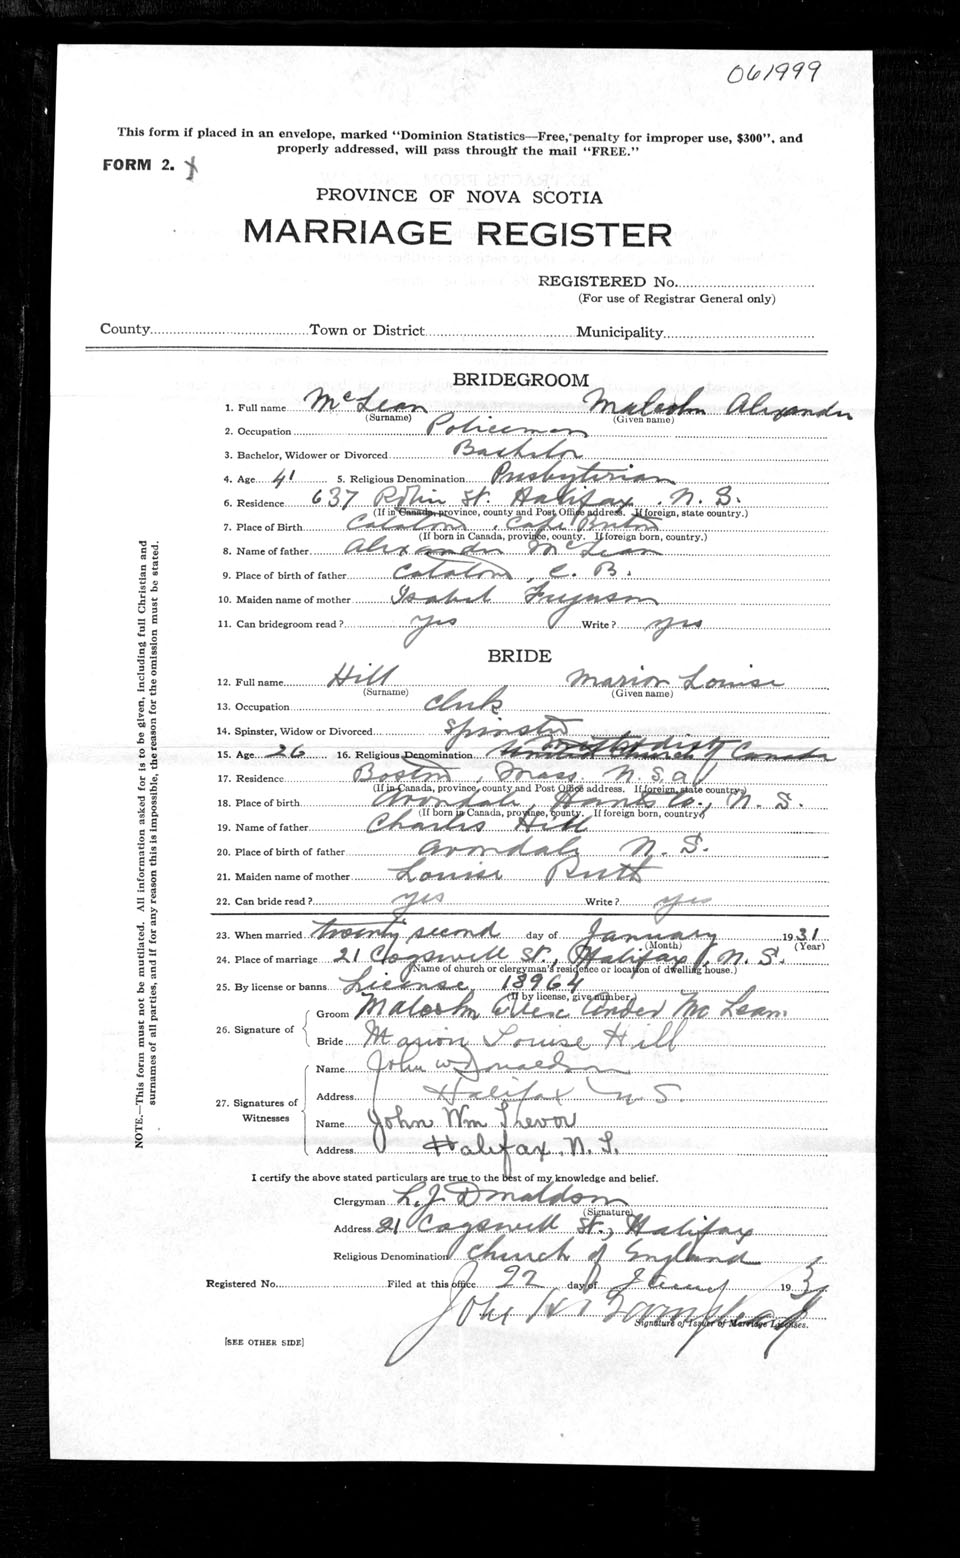 061999
This form if placed in an envelope, marked "Dominion Statistics—Free, penalty for improper use, $300", and
properly addressed, will pass through the mail "FREE."
FORM 2.
PROVINCE OF NOVA SCOTIA
MARRIAGE REGISTER
REGISTERED No.
(For use of Registrar General only)
County Town or District Municipality
BRIDEGROOM
1. Full name McLean Malcolm Alexander
(Surname) (Given name)
2. Occupation Policeman
3. Bachelor, Widower or Divorced Bachelor
4. Age 41 5. Religious Denomination Presbyterian
6. Residence 637 Robie St. Halifax, N. S.
(If in Canada, province, county and Post Office address. If foreign, state country.)
7. Place of Birth Catalone, Cape Breton
(If born in Canada, province, county. If foreign born, country.)
8. Name of father Alexander McLean
9. Place of birth of father Catalone, C. B.
10. Maiden name of mother Isabel Ferguson
11. Can bridegroom read? yes Write? yes
BRIDE
12. Full name Hill Marion Louise
(Surname) (Given name)
13. Occupation Clerk
14. Spinster, Widow or Divorced Spinster
15. Age 26 16. Religious Denomination United Church of Canada
17. Residence Boston, Mass.
(If in Canada, province, county and Post Office address. If foreign, state country.)
18. Place of birth Avondale, Hants Co., N. S.
(If born in Canada, province, county. If foreign born, country.)
19. Name of father Charles Hill
20. Place of birth of father Avondale N. S.
21. Maiden name of mother Louise
22. Can bride read? yes Write? yes
23. When married twenty second day of January 1931
(Month) (Year)
24. Place of marriage 21 Cogswell St., Halifax, N. S.
(Name of church or clergyman's residence or location of dwelling house.)
25. By license or banns License 18964
(If by license, give number.)
26. Signature of
Groom Malcolm Alexander McLean
Bride Marion Louise Hill
27. Signatures of Witnesses
Name John W Donaldson
Address Halifax N. S.
Name John Wm Trevor
Address Halifax, N. S.
I certify the above stated particulars are true to the best of my knowledge and belief.
Clergyman L. J. Donaldson
(Signature)
Address 21 Cogswell St., Halifax
Religious Denomination Church of England
Registered No. Filed at this office 22 day of 193
John
Signature of Issuer of Marriage Licenses.
[SEE OTHER SIDE]
NOTE.—This form must not be mutilated. All information asked for is to be given, including full Christian and
surnames of all parties, and if for any reason this is impossible, the reason for the omission must be stated.